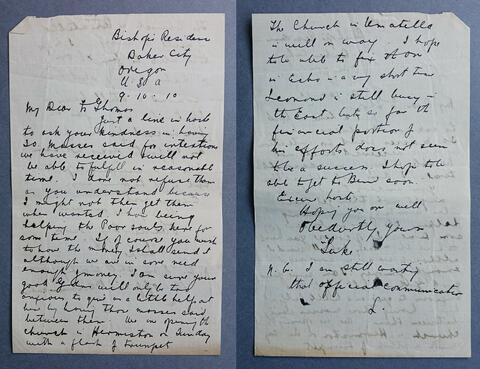 Bishop's Residence
Baker City
Oregon
U S A
9-10-10
My Dear Fr Thomas
Just a line in haste
to ask your kindness in having
30 masses said for intentions
we have received & will not
be able to fulfil in reasonable
time. I dare not refuse them
as you understand because
I might not then get them
when wanted. I was being
helping the Poor souls here for
some time. If of course you wish
to have the money I shall send it
although we are in sore need
enough of money. I am sure your
good will only be too
anxious to give us a little help at
her by having those masses said
between them. We are opening the
church in Hermiston on Sunday
with a flash of trumpet
The Church in Umatilla
is well on way. I hope
to be able to fix at one
in Echo in a very short time
Leonard is still busy in
the East, but so far the
financial portion of
his efforts does not seem
to be a success. I hope to be
able to get to Bend soon.
Ever
Hoping you are well
Obediently yours
Luke
P.S. I am still waiting
that official communication
L.